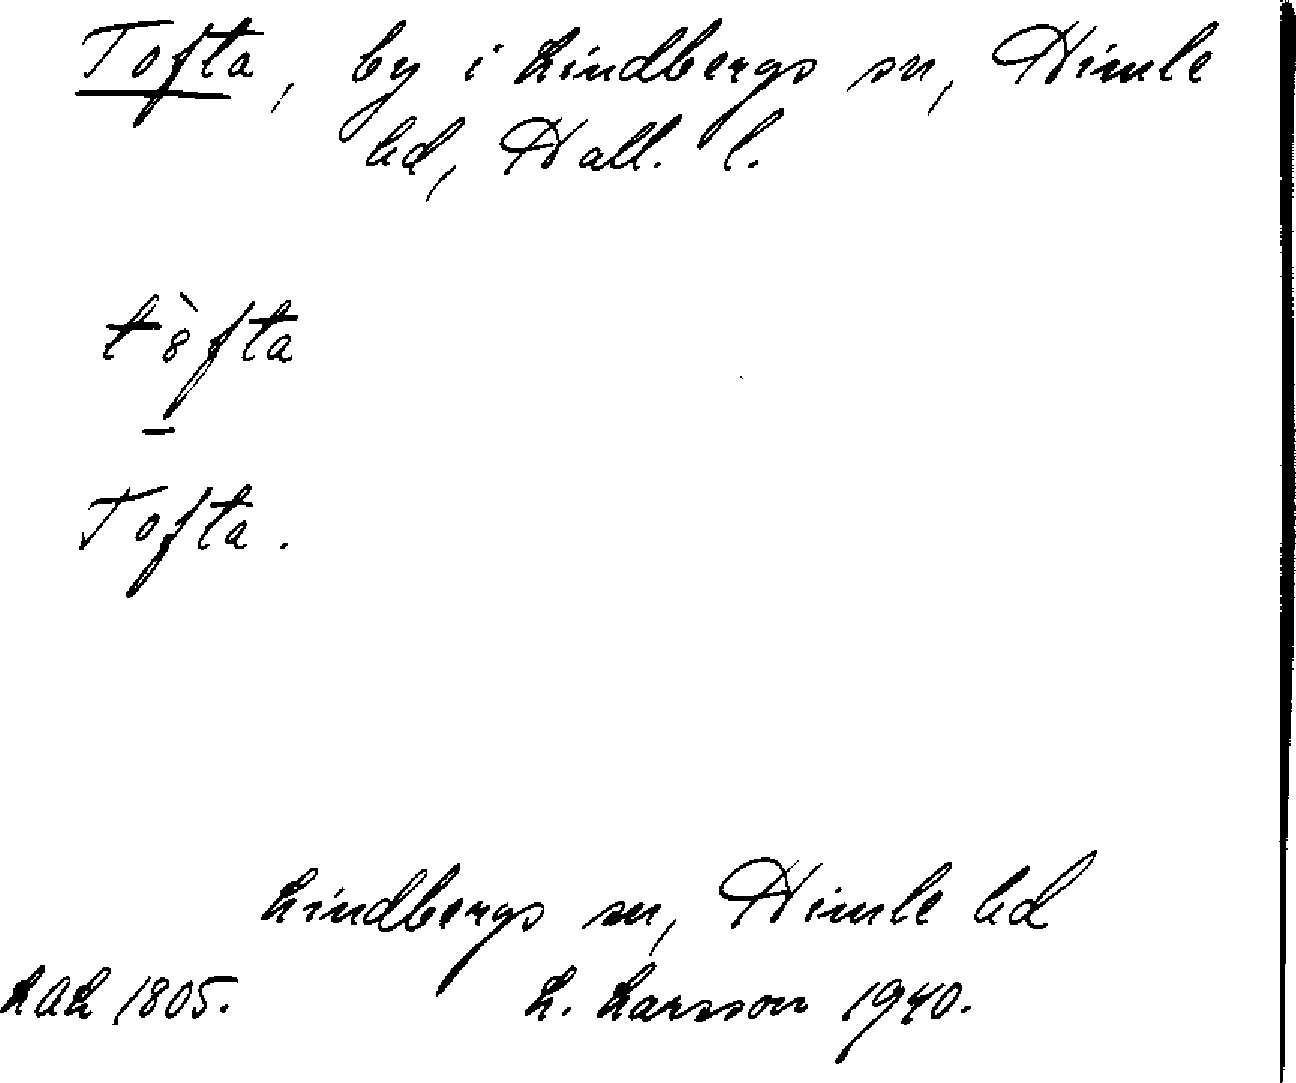 Tofta, by i Lindbergs sn, Himle
hd, Hall. l.
tòfta
–
Tofta.
Lindbergs sn, Himle hd
LAL 1805. L. Larsson 1940.